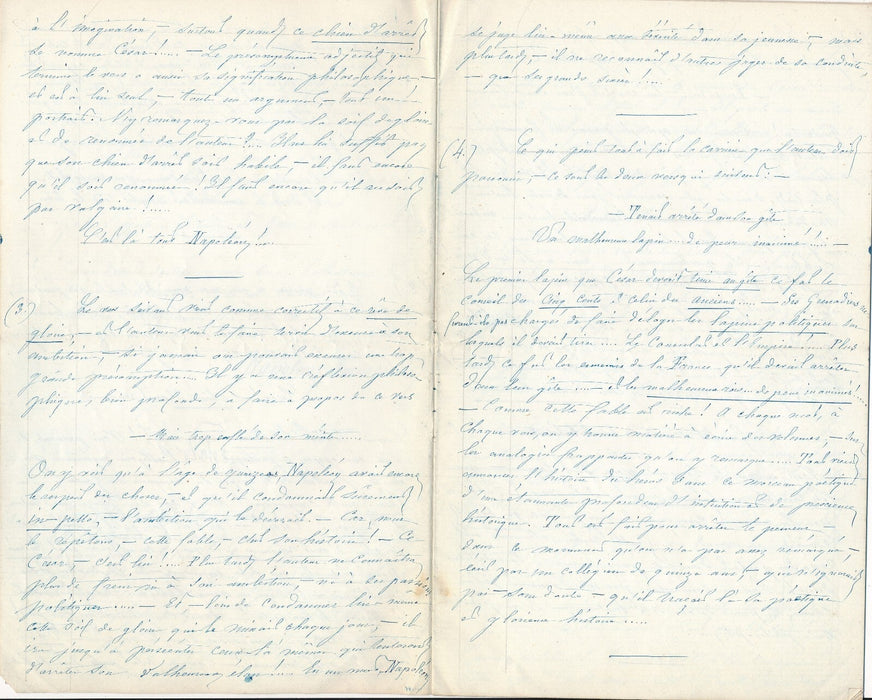 à l'imagination, - surtout quand ce chien d'arrêt
se nomme César!.... - Le présomptueux adjectif qui
termine le vers a aussi sa signification philosophique, -
et est à lui seul, - tout un argument, - tout un
portrait. N'y remarquez-vous pas la soif de gloire
et de renommée de l'auteur?... Il ne lui suffit pas
que son chien d'arrêt soit habile, - il faut encore
qu'il soit renommé! Il faut encore qu'il ne soit
pas vulgaire!....
C'est là tout Napoléon!...
(3.) Le vers suivant vient comme correctif à ce rêve de
gloire, - et l'auteur veut le faire servir d'excuse à son
ambition, - si jamais on pouvait excuser un trop
grande présomption. Il y a une réflexion philoso-
phique, bien profonde, à faire à propos de ce vers
- Mais trop enflé de son mérite.....
On y voit qu'à l'âge de quinze ans, Napoléon avait encore
le scrupule des choses, - et qu'il condamnait sûrement
in-petto, - l'ambition qui le dévorait. - Car, nous
le répétons, - cette fable, - c'est son histoire! - Ce
César, - c'est lui!.... Plus tard, l'auteur ne connaîtra
plus de frein, ni à son ambition, - ni à ses passions
politiques..... - Et, - loin de condamner lui-même
cette soif de gloire qui le minait chaque jour, - il
ira jusqu'à persécuter ceux-là même qui tenteront
d'arrêter son malheureux élan!... En un mot, Napoléon
se juge lui-même avec sévérité dans sa jeunesse, - mais
plus tard, - il ne reconnaît d'autres juges de sa conduite,
- que ses grands succès!....
(4.) Ce qui peint tout à fait la carrière que l'auteur doit
parcourir, - ce sont les deux vers qui suivent: -
- Tenait arrêté dans son gîte
Un malheureux lapin de peur inanimé!... -
Le premier lapin que César devait tenir au gîte ce fut le
conseil des Cinq Cents et celui des anciens..... - Ses Grenadiers ne
furent-ils pas chargés de faire déloger les lapins politiques sur
lesquels il devait tirer.... Le Consulat et l'Empire!... Plus
tard ce fut les ennemis de la France qu'il devait arrêter
dans leur gîte..... - et les malheureux de peur inanimés!....
- Comme, cette fable est vraie! A chaque mot, à
chaque vers, on y trouve matière à écrire des volumes, - sur
les analogies frappantes qu'on y remarque.... Tout vient
commencer l'histoire du héros dans ce morceau poétique
d'une étonnante profondeur d'intuition et de prescience
historique. Tout est fait pour arrêter le penseur -
dans ce monument qu'on n'a pas assez remarqué, -
écrit par un collégien de quinze ans, - qui n'ignorait
pas - sans doute - qu'il traçait là sa poétique
et glorieuse histoire.....